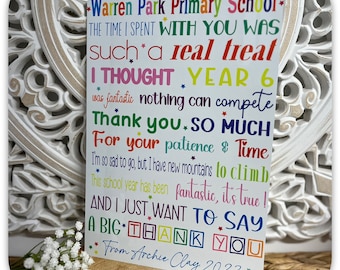 Warren Park Primary School
THE TIME I SPENT WITH YOU WAS
such a real treat
I THOUGHT YEAR 6
was fantastic nothing can compete
Thank you, SO MUCH
For your patience & Time
I'm so sad to go, but I have new mountains to climb
This school year has been fantastic, it's true!
AND I JUST WANT TO SAY
A BIG THANK YOU
From Archie Clay 2022